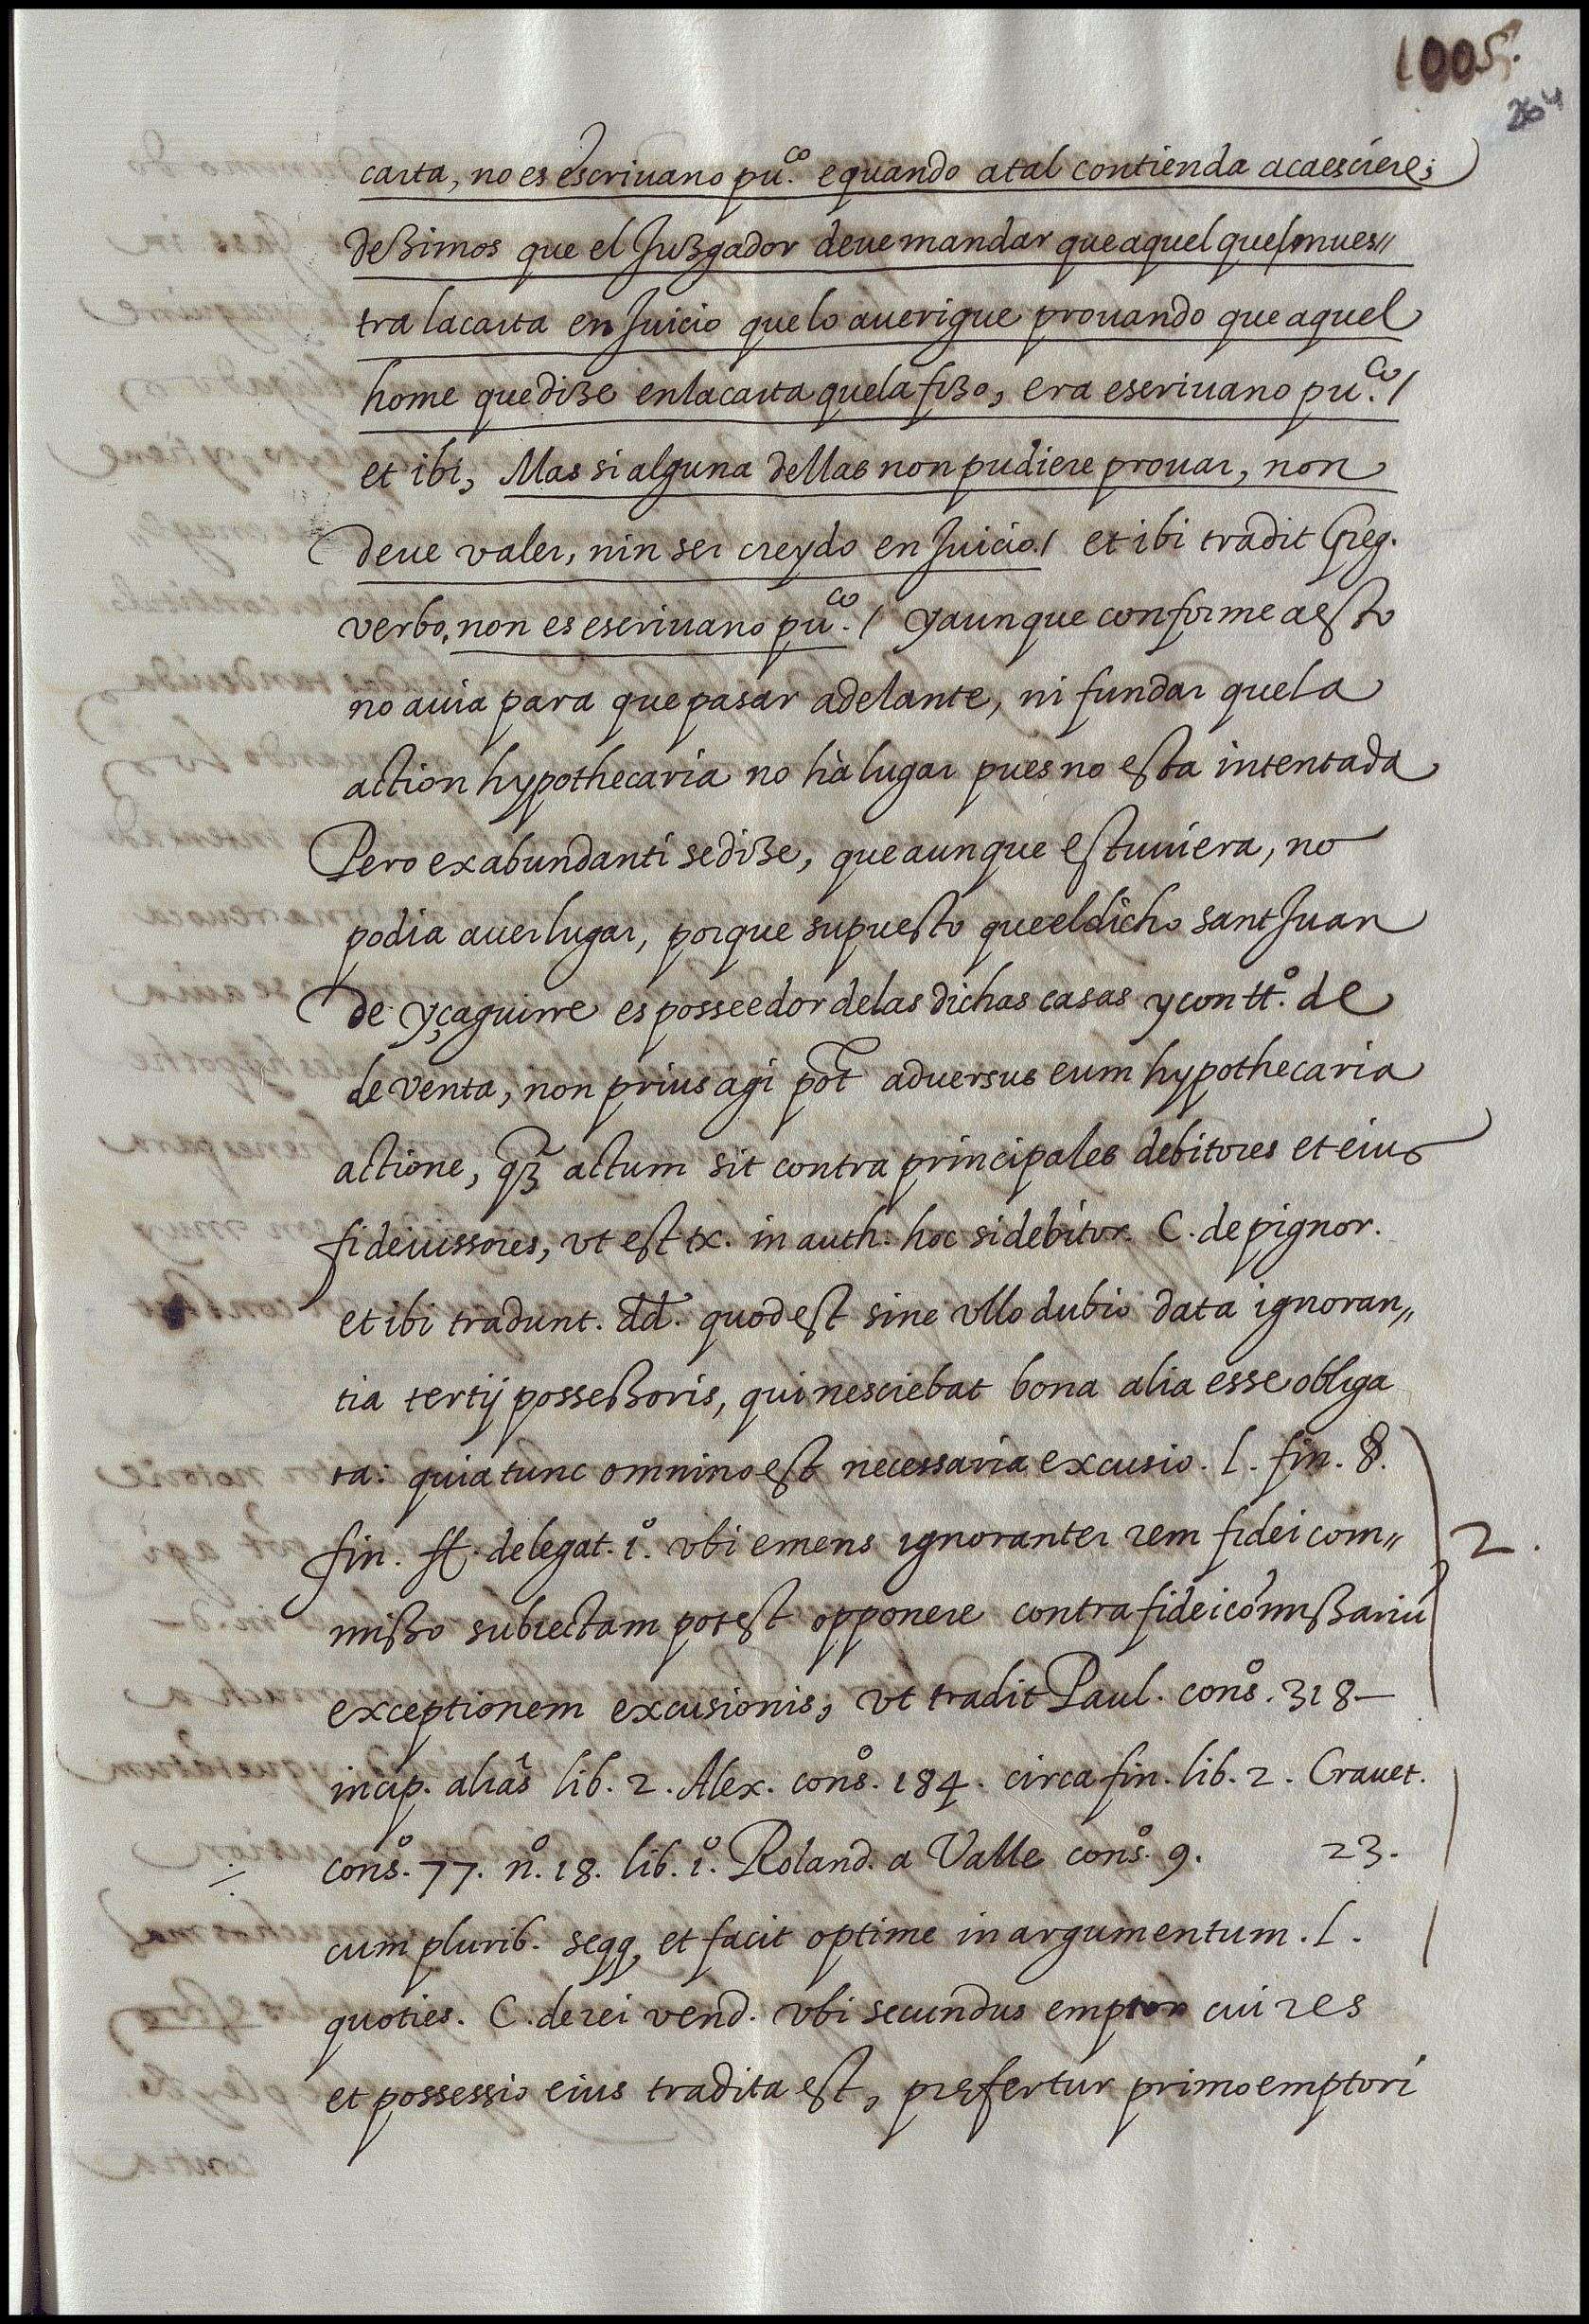 1005.
264
carta, no es escriuano pu.co e quando atal contienda acaesciere;
dezimos que el Juzgador deue mandar que aquel que mues//
tra la carta en Juicio que lo auerigue prouando que aquel
home que dize en la carta que la fizo, era escriuano pu.co /
et ibi, Mas si alguna dellas non pudiere prouar, non
deue valer, nin ser creydo en Juicio./ et ibi tradit Greg.
verbo, non es escriuano pu.co / y aunque conforme a esto
no auia para que pasar adelante, ni fundar que la
action hypothecaria no hà lugar pues no esta intentada
Pero ex abundanti se dize, que aunque estuuiera, no
podia auer lugar, porque supuesto que el dicho sant Juan
de yçaguirre es posseedor de las dichas casas y con tt.o de
de venta, non prius agi pot aduersus eum hypothecaria
actione, qz actum sit contra principales debitores et eius
fideiussores, vt est tx. in auth. hoc si debitor. C. de pignor.
et ibi tradunt. dd. quod est sine vllo dubio data ignoran//
tia tertij possessoris, qui nesciebat bona alia esse obliga
ta: quia tunc omnino est necessaria excusio. l. fin. §.
fin. ff. de legat. 1.o vbi emens ignoranter rem fidei com//
misso subiectam potest opponere contra fideicomissariu
2.
exceptionem excusionis, vt tradit Paul. cons.o 318—
incip. alias lib. 2. Alex. cons.o 184. circa fin. lib. 2. Crauet.
cons.o 77. n.o 18. lib. 1.o Roland. a Valle cons.o 9. 23.
cum plurib. seqq, et facit optime in argumentum. l.
quoties. C. de rei vend. vbi secundus emptor cui res
et possessio eius tradita est, prefertur primo emptori
contra